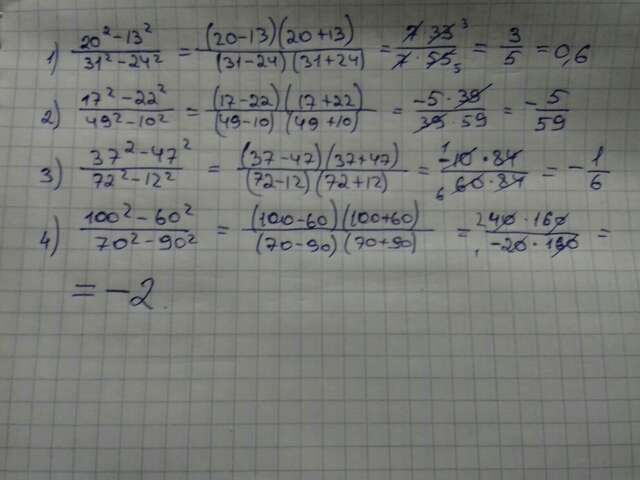 1) (20² - 13²)/(31² - 24²) = ((20-13)(20+13))/((31-24)(31+24)) = (7·33 3)/(7·55 5) = 3/5 = 0,6
2) (17² - 22²)/(49² - 10²) = ((17-22)(17+22))/((49-10)(49+10)) = (-5·39)/(39·59) = -5/59
3) (37² - 47²)/(72² - 12²) = ((37-47)(37+47))/((72-12)(72+12)) = (1 -10·84)/(6 60·84) = -1/6
4) (100² - 60²)/(70² - 90²) = ((100-60)(100+60))/((70-90)(70+90)) = (2 40·160)/(1 -20·160) =
= -2